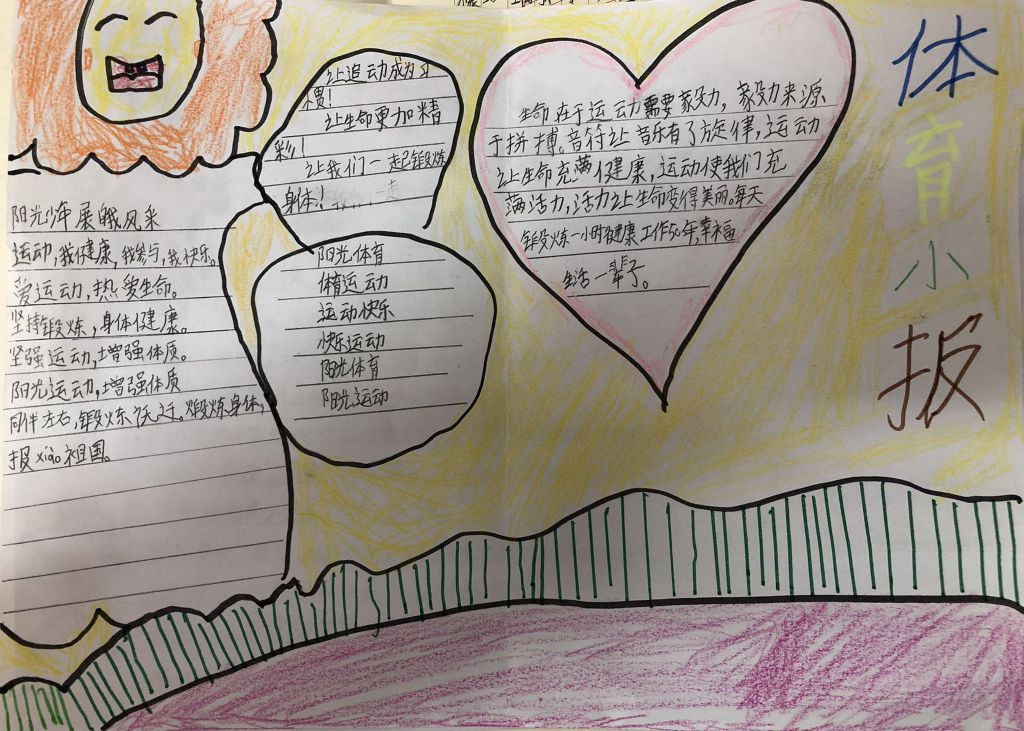 体育小报
生命在于运动需要毅力，毅力来源
于拼搏。音符让音乐有了旋律，运动
让生命充满健康，运动使我们充
满活力，活力让生命变得美丽。每天
锻炼一小时健康工作50年，幸福
生活一辈子。
让追动成为习
惯！
让生命更加精
彩！
让我们一起锻炼
身体！
阳光体育
体育运动
运动快乐
快乐运动
阳光体育
阳光运动
阳光少年展我风采
运动，我健康，我参与，我快乐。
爱运动，热爱生命。
坚持锻炼，身体健康。
坚强运动，增强体质。
阳光运动，增强体质
同伴左右，锻炼东 。煅炼身体，
报xiào祖国。